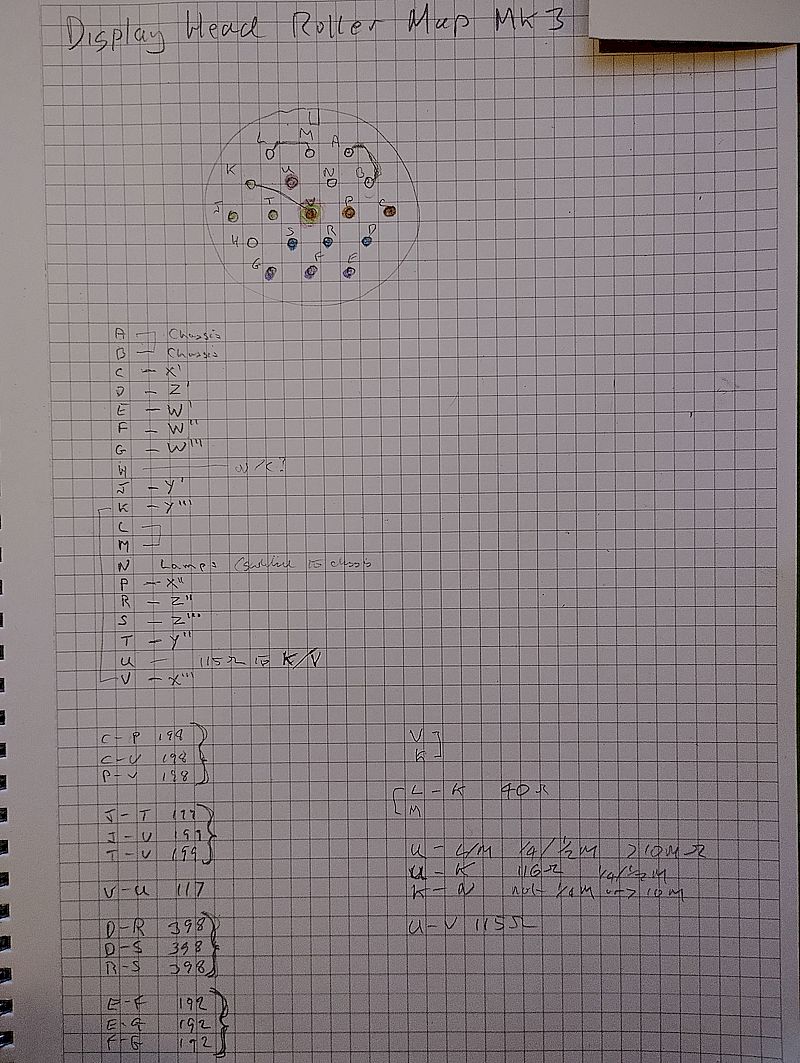 Display Head Roller Map MK 3
L M A
K U N B
J T V P C
H S R D
G F E
A - Chassis
B - Chassis
C - X'
D - Z'
E - W'
F - W''
G - W'''
H - N/C?
J - Y'
K - Y'''
L
M
N Lamps to chassis
P - X''
R - Z''
S - Z'''
T - Y''
U - 115Ω to K/V
V - X'''
C - P 198
C - V 198
P - V 198
J - T 199
J - V 199
T - V 199
V - U 117
D - R 398
D - S 398
R - S 398
E - F 192
E - G 192
F - G 192
V
K
L - K 40Ω
M
U - L/M 1/4/1/2M >10MΩ
U - K 116Ω 1/4/1/2M
K - N 1/4M >10M
U - V 115Ω